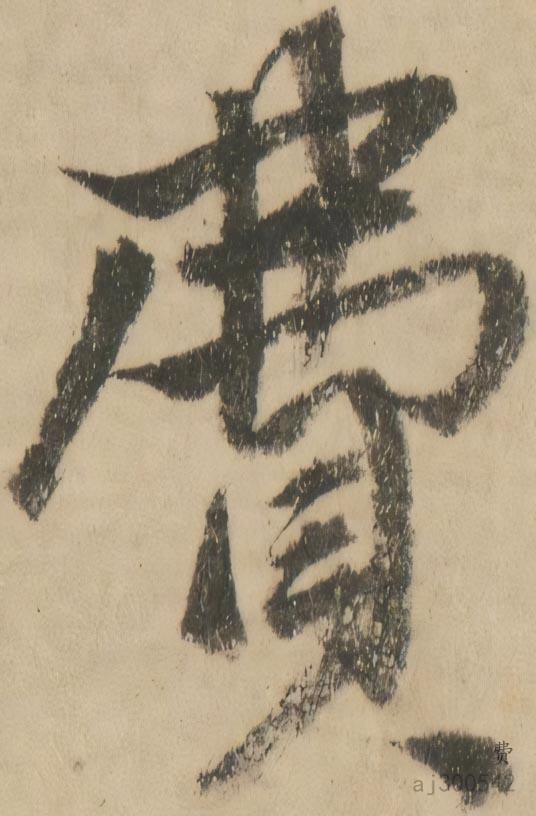 費
費
aj300542